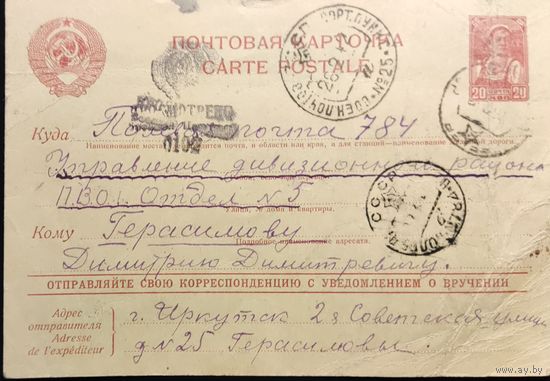 ПОЧТОВАЯ КАРТОЧКА
CARTE POSTALE
20 20
ПРОСМОТРЕНО
Куда Полевая почта 784
Наименование места, где находится почта, а для станций—наименование железной дороги.
Управление дивизионного района
П.В.О. Отдел №5
Улица, № дома и квартиры.
Кому Герасимову
Подробное наименование адресата.
Димитрию Димитревичу.
ОТПРАВЛЯЙТЕ СВОЮ КОРРЕСПОНДЕНЦИЮ С УВЕДОМЛЕНИЕМ О ВРУЧЕНИИ
Адрес отправителя
Adresse de l'expéditeur
г. Иркутск 2я Советская улица
д №25 Герасимовы.
www.ay.by